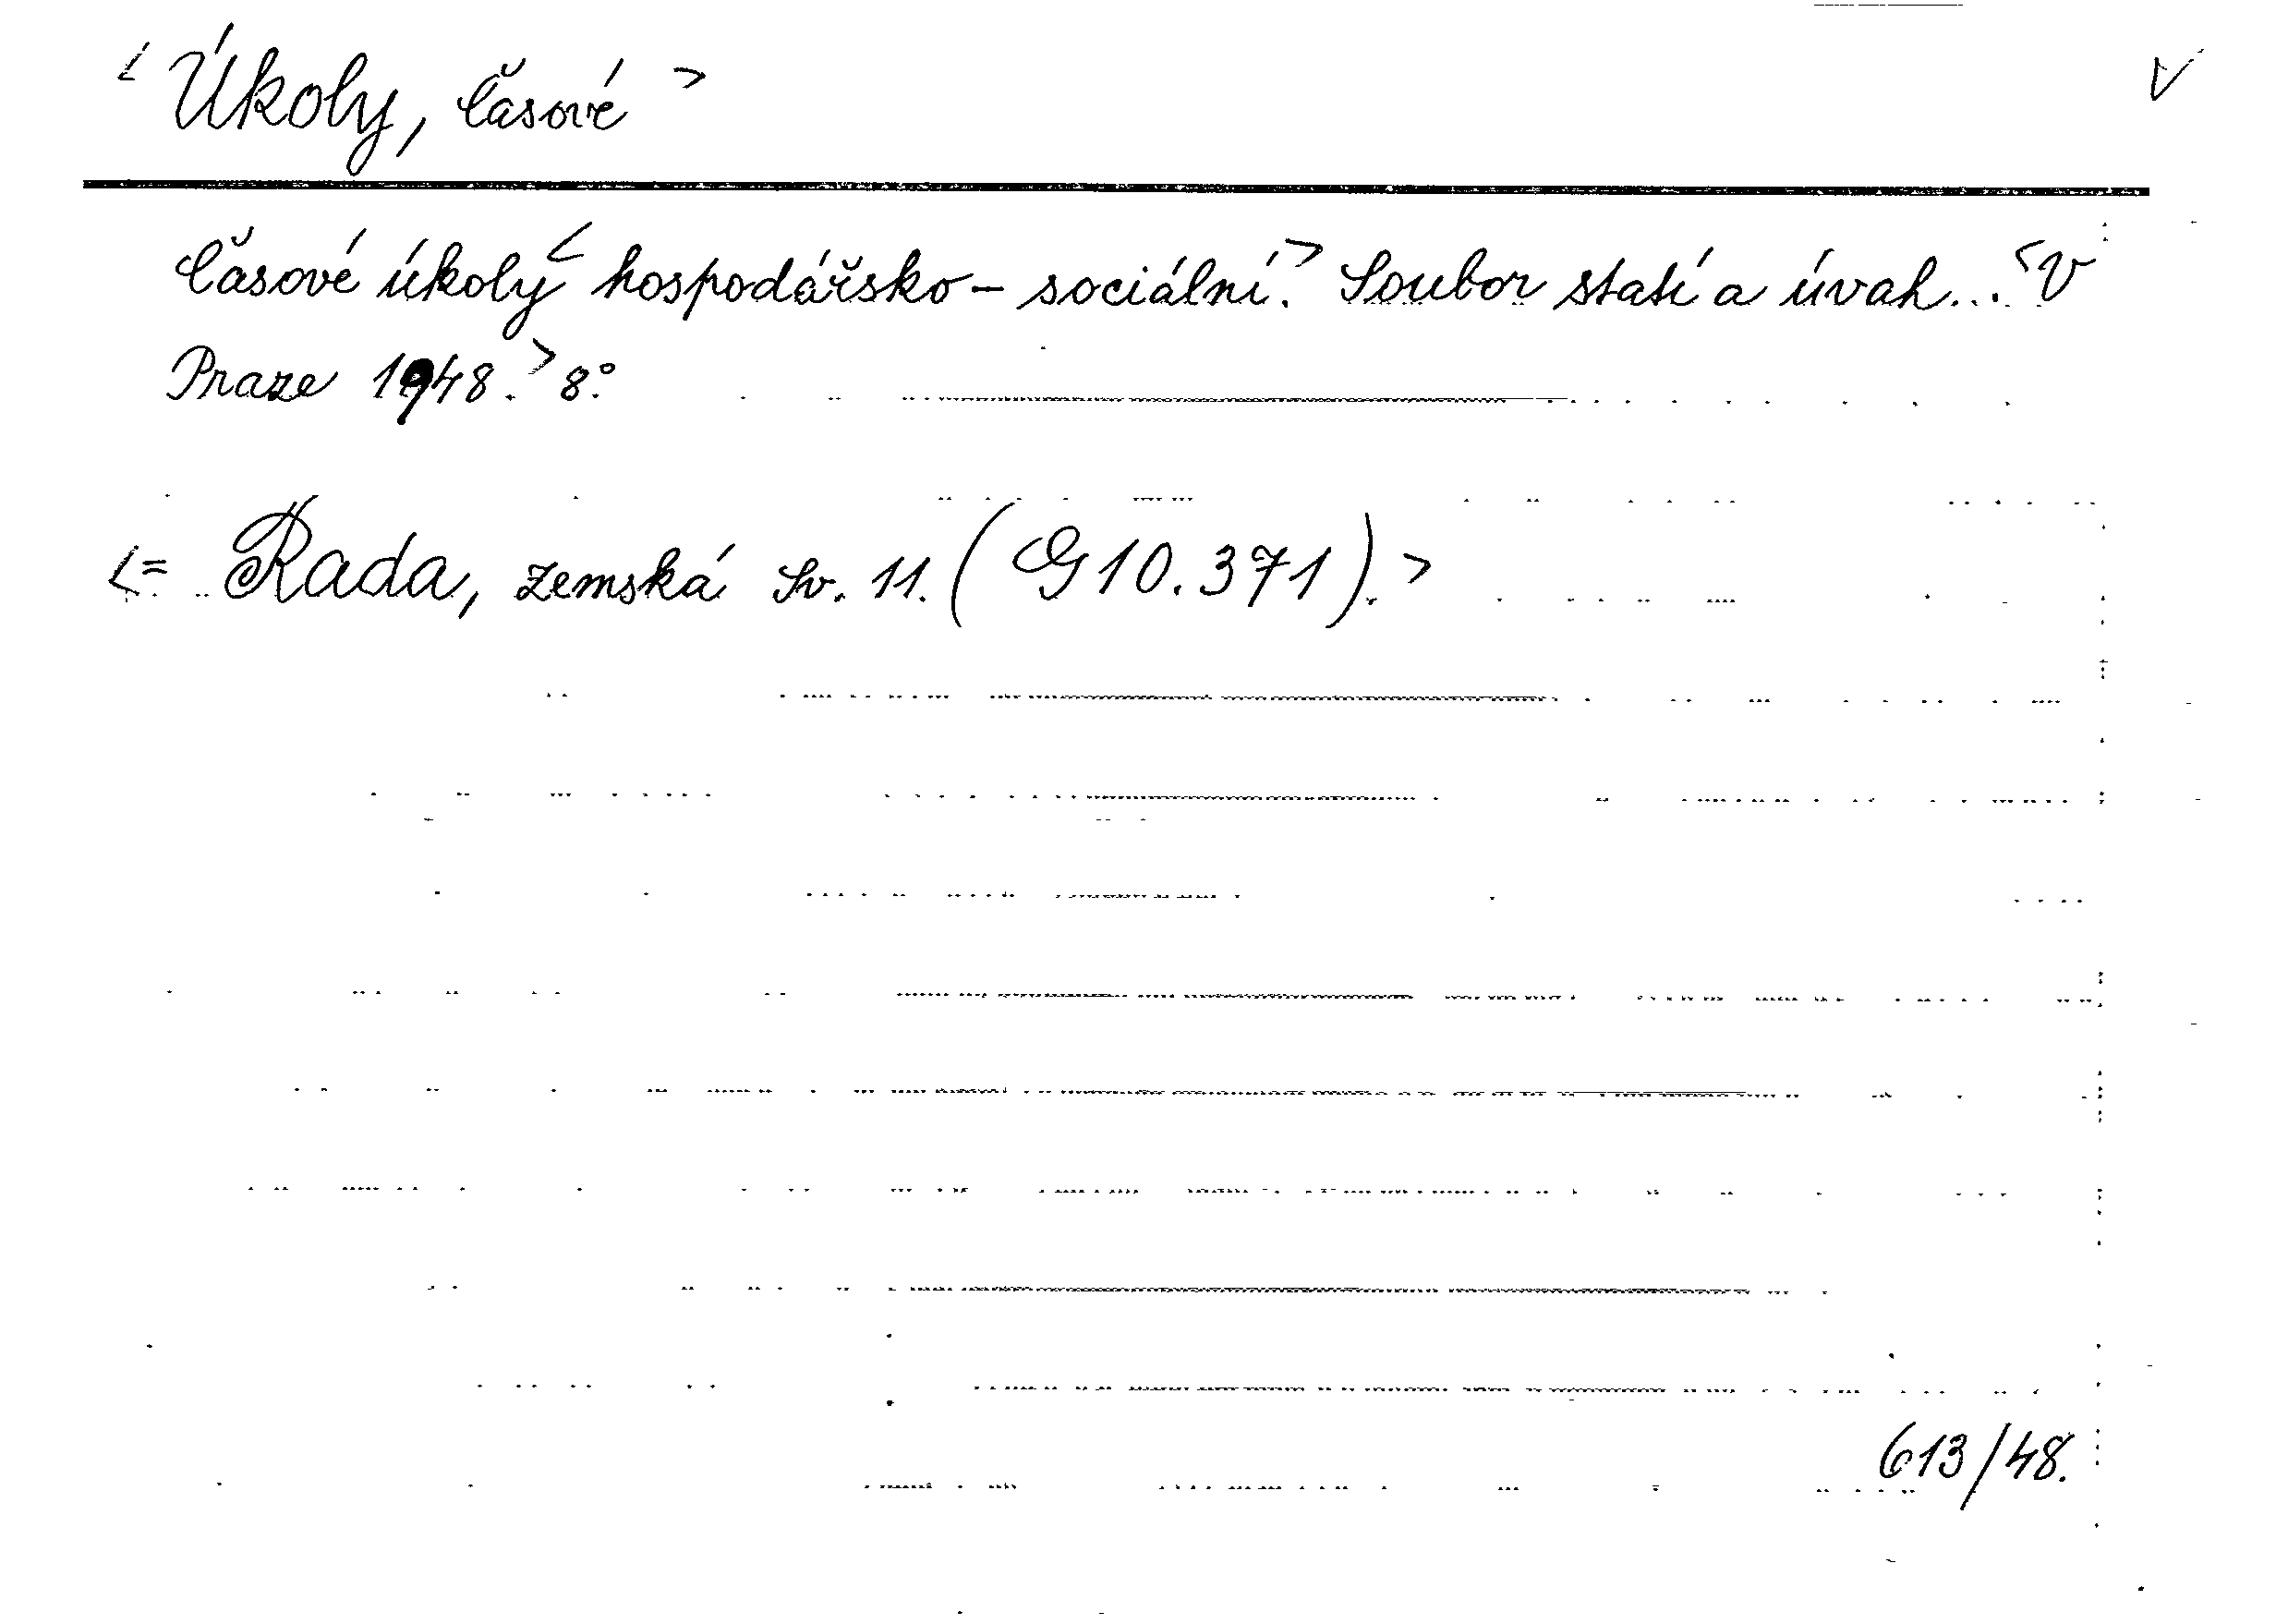 < Úkoly, časové > V
Časové úkoly < hospodářsko - sociální. > Soubor statí a úvah... < V
Praze 1948. > 8°.
<= Řada, zemská Sv. 11. (G 10.371). >
613/48.